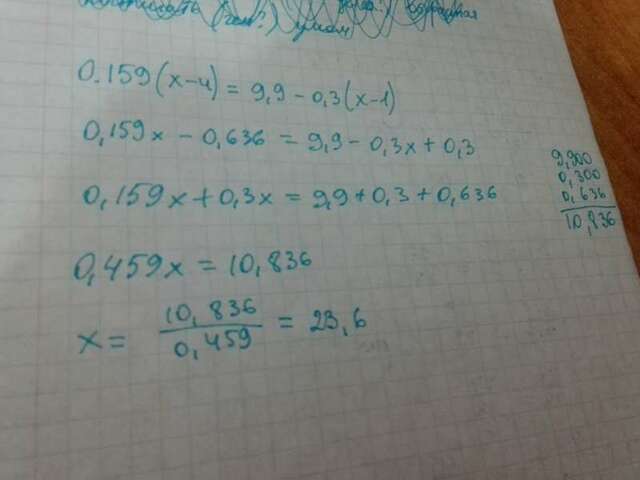 0.159(x-4) = 9,9 - 0,3(x-1)
0,159x - 0,636 = 9,9 - 0,3x + 0,3
0,159x + 0,3x = 9,9 + 0,3 + 0,636
9,900
0,300
0,636
10,836
0,459x = 10,836
x = 10,836 / 0,459 = 23,6